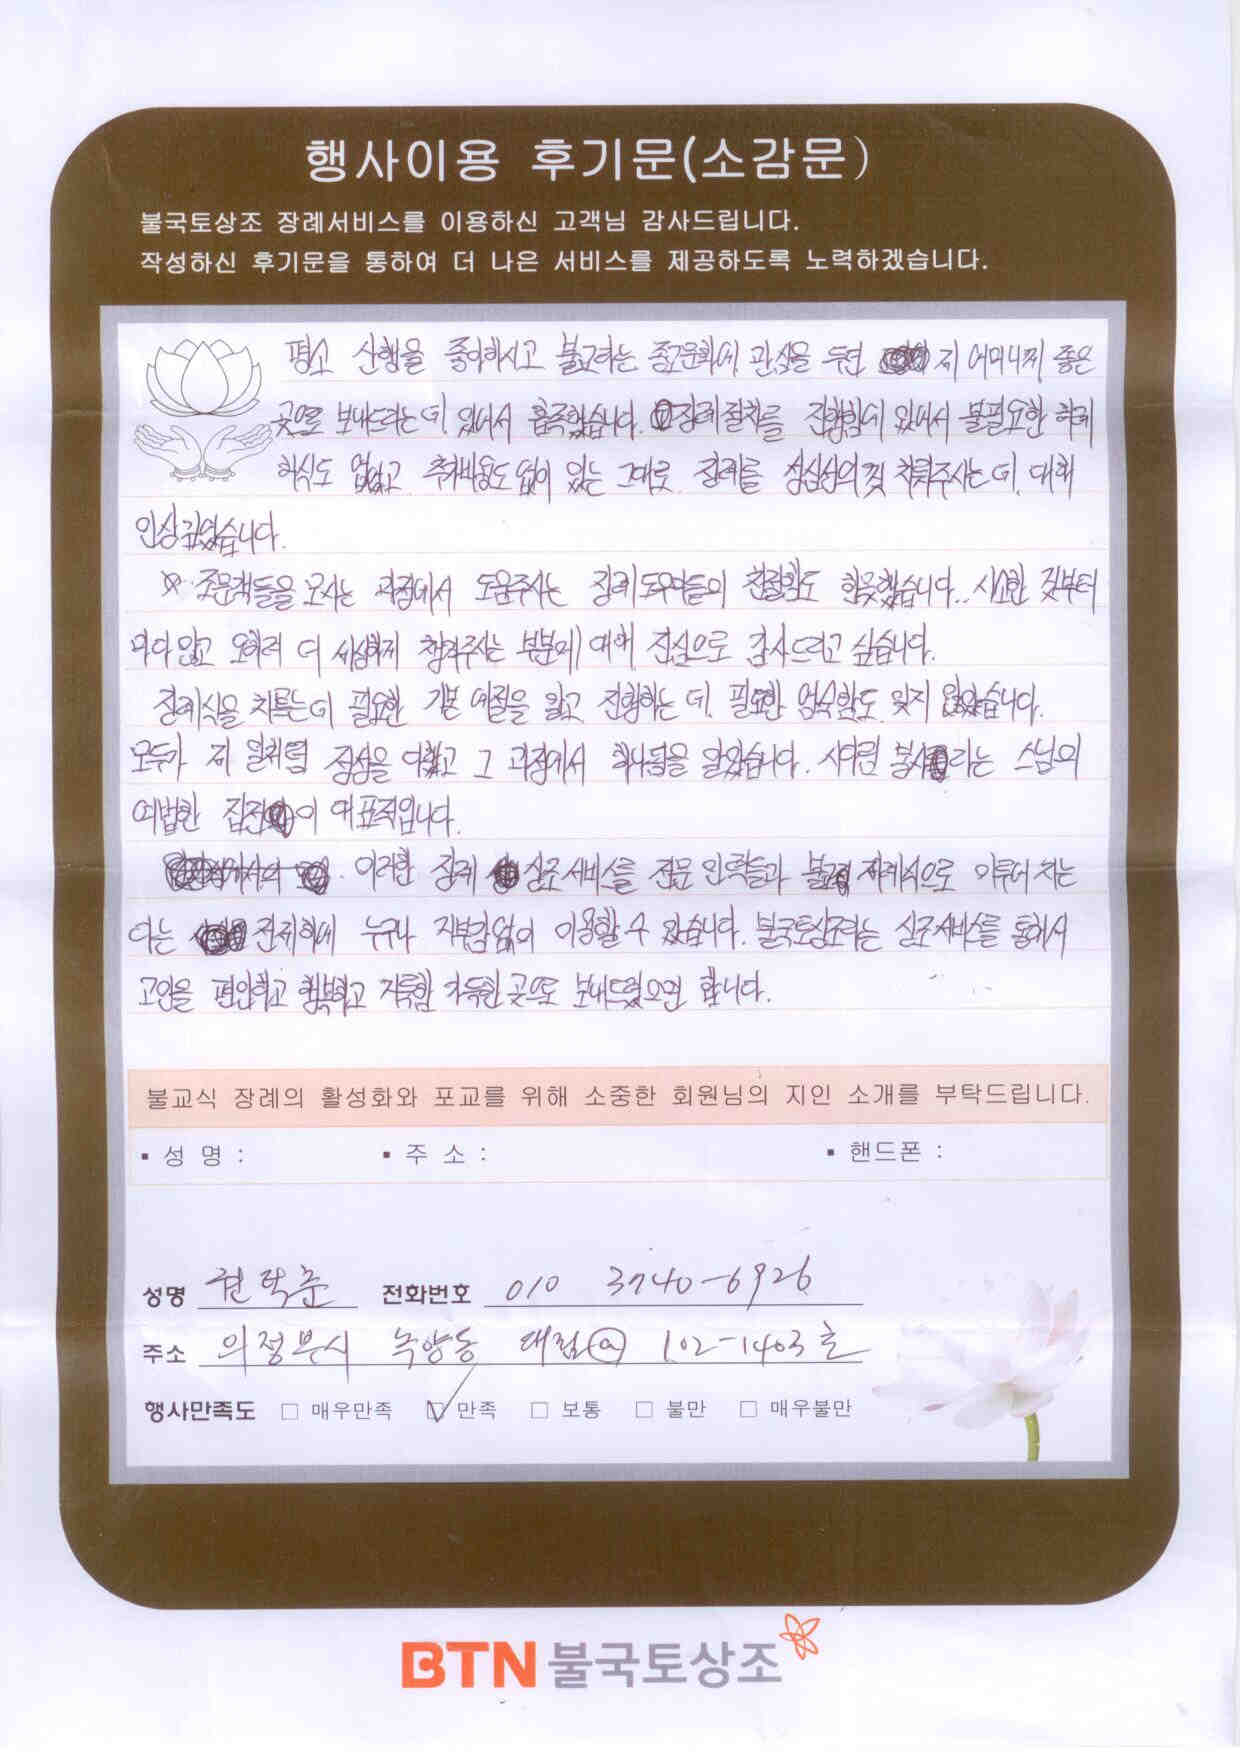 행사이용 후기문(소감문)
불국토상조 장례서비스를 이용하신 고객님 감사드립니다.
작성하신 후기문을 통하여 더 나은 서비스를 제공하도록 노력하겠습니다.
평소 산행을 좋아하시고 불교라는 종교문화에 관심을 두던 저 어머니께 좋은
곳으로 보내드리는데 있어서 흡족했습니다. 장례절차를 진행함에 있어서 불필요한 허례
허식도 없었고 추가비용도 없이 있는 그대로 장례를 정성성의껏 치뤄주시는 데 대해
인상깊었습니다.
※ 조문객들을 모시는 과정에서 도움주시는 장례도우미들의 친절함도 한몫했습니다.. 사소한 것부터
마다 않고 오히려 더 세심하게 챙겨주시는 부분에 대해 진심으로 감사드리고 싶습니다.
장례식을 치르는데 필요한 기본 예절을 알고 진행하는 데 필요한 엄숙함도 잊지 않았습니다.
모두가 제 일처럼 정성을 다했고 그 과정에서 하나됨을 알았습니다. 시다림 봉사라는 스님의
여법한 집전이 대표적입니다.
이러한 장례 상조서비스를 전문 인력들과 불교 장례식으로 이루어지는
다는 전제하에 누구나 거부감없이 이용할 수 있습니다. 불국토상조라는 상조서비스를 통해서
고인을 편안하고 행복하고 가득한 곳으로 보내드렸으면 합니다.
불교식 장례의 활성화와 포교를 위해 소중한 회원님의 지인 소개를 부탁드립니다.
▪ 성 명 : ▪ 주 소 : ▪ 핸드폰 :
성명 권탁춘 전화번호 010 3740-6926
주소 의정부시 녹양동 대림ⓐ 102-1403호
행사만족도 □ 매우만족 ☑ 만족 □ 보통 □ 불만 □ 매우불만
BTN 불국토상조